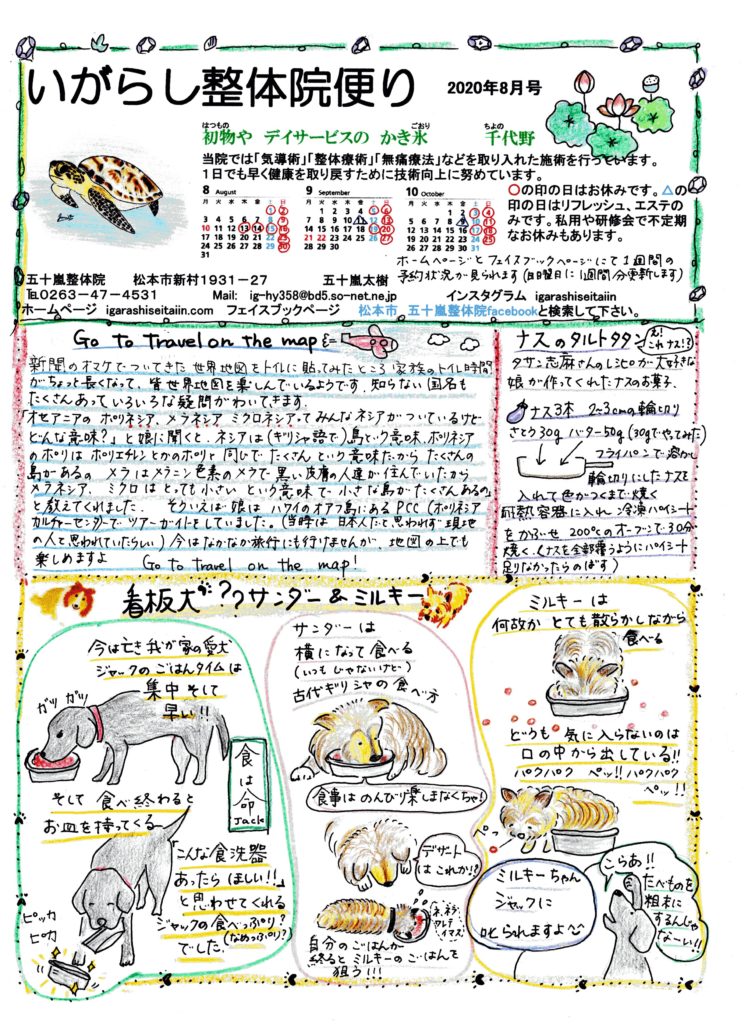 いがらし整体院便り 2020年8月号
はつもの ごおり ちよの
初物や デイサービスの かき氷 千代野
当院では「気導術」「整体療術」「無痛療法」などを取り入れた施術を行っています。
1日でも早く健康を取り戻すために技術向上に努めています。
8 August
月 火 水 木 金 土 日
1 2
3 4 5 6 7 8 9
10 11 12 13 14 15 16
17 18 19 20 21 22 23
24 25 26 27 28 29 30
31
9 September
月 火 水 木 金 土 日
1 2 3 4 5 6
7 8 9 10 11 12 13
14 15 16 17 18 19 20
21 22 23 24 25 26 27
28 29 30
10 October
月 火 水 木 金 土 日
1 2 3 4
5 6 7 8 9 10 11
12 13 14 15 16 17 18
19 20 21 22 23 24 25
26 27 28 29 30 31
○の印の日はお休みです。△の
印の日はリフレッシュ、エステの
みです。私用や研修会で不定期
なお休みもあります。
ホームページとフェイスブックページにて1週間の
予約状況が見られます(日曜日に1週間分更新します)
五十嵐整体院 松本市新村1931－27 五十嵐太樹
℡0263－47－4531 Mail: ig-hy358@bd5.so-net.ne.jp インスタグラム igarashiseitaiin
ホームページ igarashiseitaiin.com フェイスブックページ 松本市 五十嵐整体院facebookと検索して下さい。
Go to travel on the map
新聞のオマケでついてきた世界地図をトイレに貼ってみたところ家族のトイレ時間
がちょっと長くなって、皆世界地図を楽しんでいるようです。知らない国名も
たくさんあっていろいろな疑問がわいてきます。
「オセアニアのポリネシア、メラネシア ミクロネシアってみんなネシアがついているけど
どんな意味?」と娘に聞くと、ネシアは(ギリシャ語で)島という意味、ポリネシア
のポリはポリエチレンとかのポリと同じでたくさんという意味だからたくさんの
島があるの。メラはメラニン色素のメラで黒い皮膚の人達が住んでいたから
メラネシア、ミクロはとっても小さいという意味で小さな島がたくさんあるの」
と教えてくれました。そういえば娘はハワイのオアフ島にあるPCC(ポリネシア
カルチャーセンター)でツアーガイドをしていました。(当時は日本人だと思われず現地
の人と思われていたらしい)今はなかなか旅行にも行けませんが、地図の上でも
楽しめますよ Go to travel on the map!
ナスのタルトタタン
え!これナス!?
タサン志麻さんのレシピが大好きな
娘が作ってくれたナスのお菓子。
ナス3本 2～3cmの輪切り
さとう30g バター50g(30gでやってみた)
フライパンで溶かし
輪切りにしたナスを
入れて色がつくまで焼く
耐熱容器に入れ冷凍パイシート
をかぶせ 200℃のオーブンで30分
焼く。(ナスを全部覆うようにパイシート
足りなかったらのばす)
看板犬が??サンダー&ミルキー
今は亡き我が家の愛犬
ジャックのごはんタイムは
集中そして
早い!!
ガツ ガツ
食は命
Jack
そして食べ終わると
お皿を持ってくる
「こんな食洗器
あったらほしい!!」
と思わせてくれる
ジャックの食べっぷり?
(なめっぷり?)
でした。
ピッカ
ピカ
サンダーは
横になって食べる
(いつもじゃないけど…)
古代ギリシャの食べ方
食事はのんびり楽しまなくちゃ!
デザート
はこれか!!
自分のごはんが
終るとミルキーのごはんを
狙う!!!
ミルキーは
何故かとても散らかしながら
食べる
どうも気に入らないのは
口の中から出している!!
パクパク ペッ!!パクパク
ペッ!!
ペっ
ミルキーちゃん
ジャックに
叱られますよ〜
こらあ!!
たべものを
粗末に
するんじゃ
な〜い!!